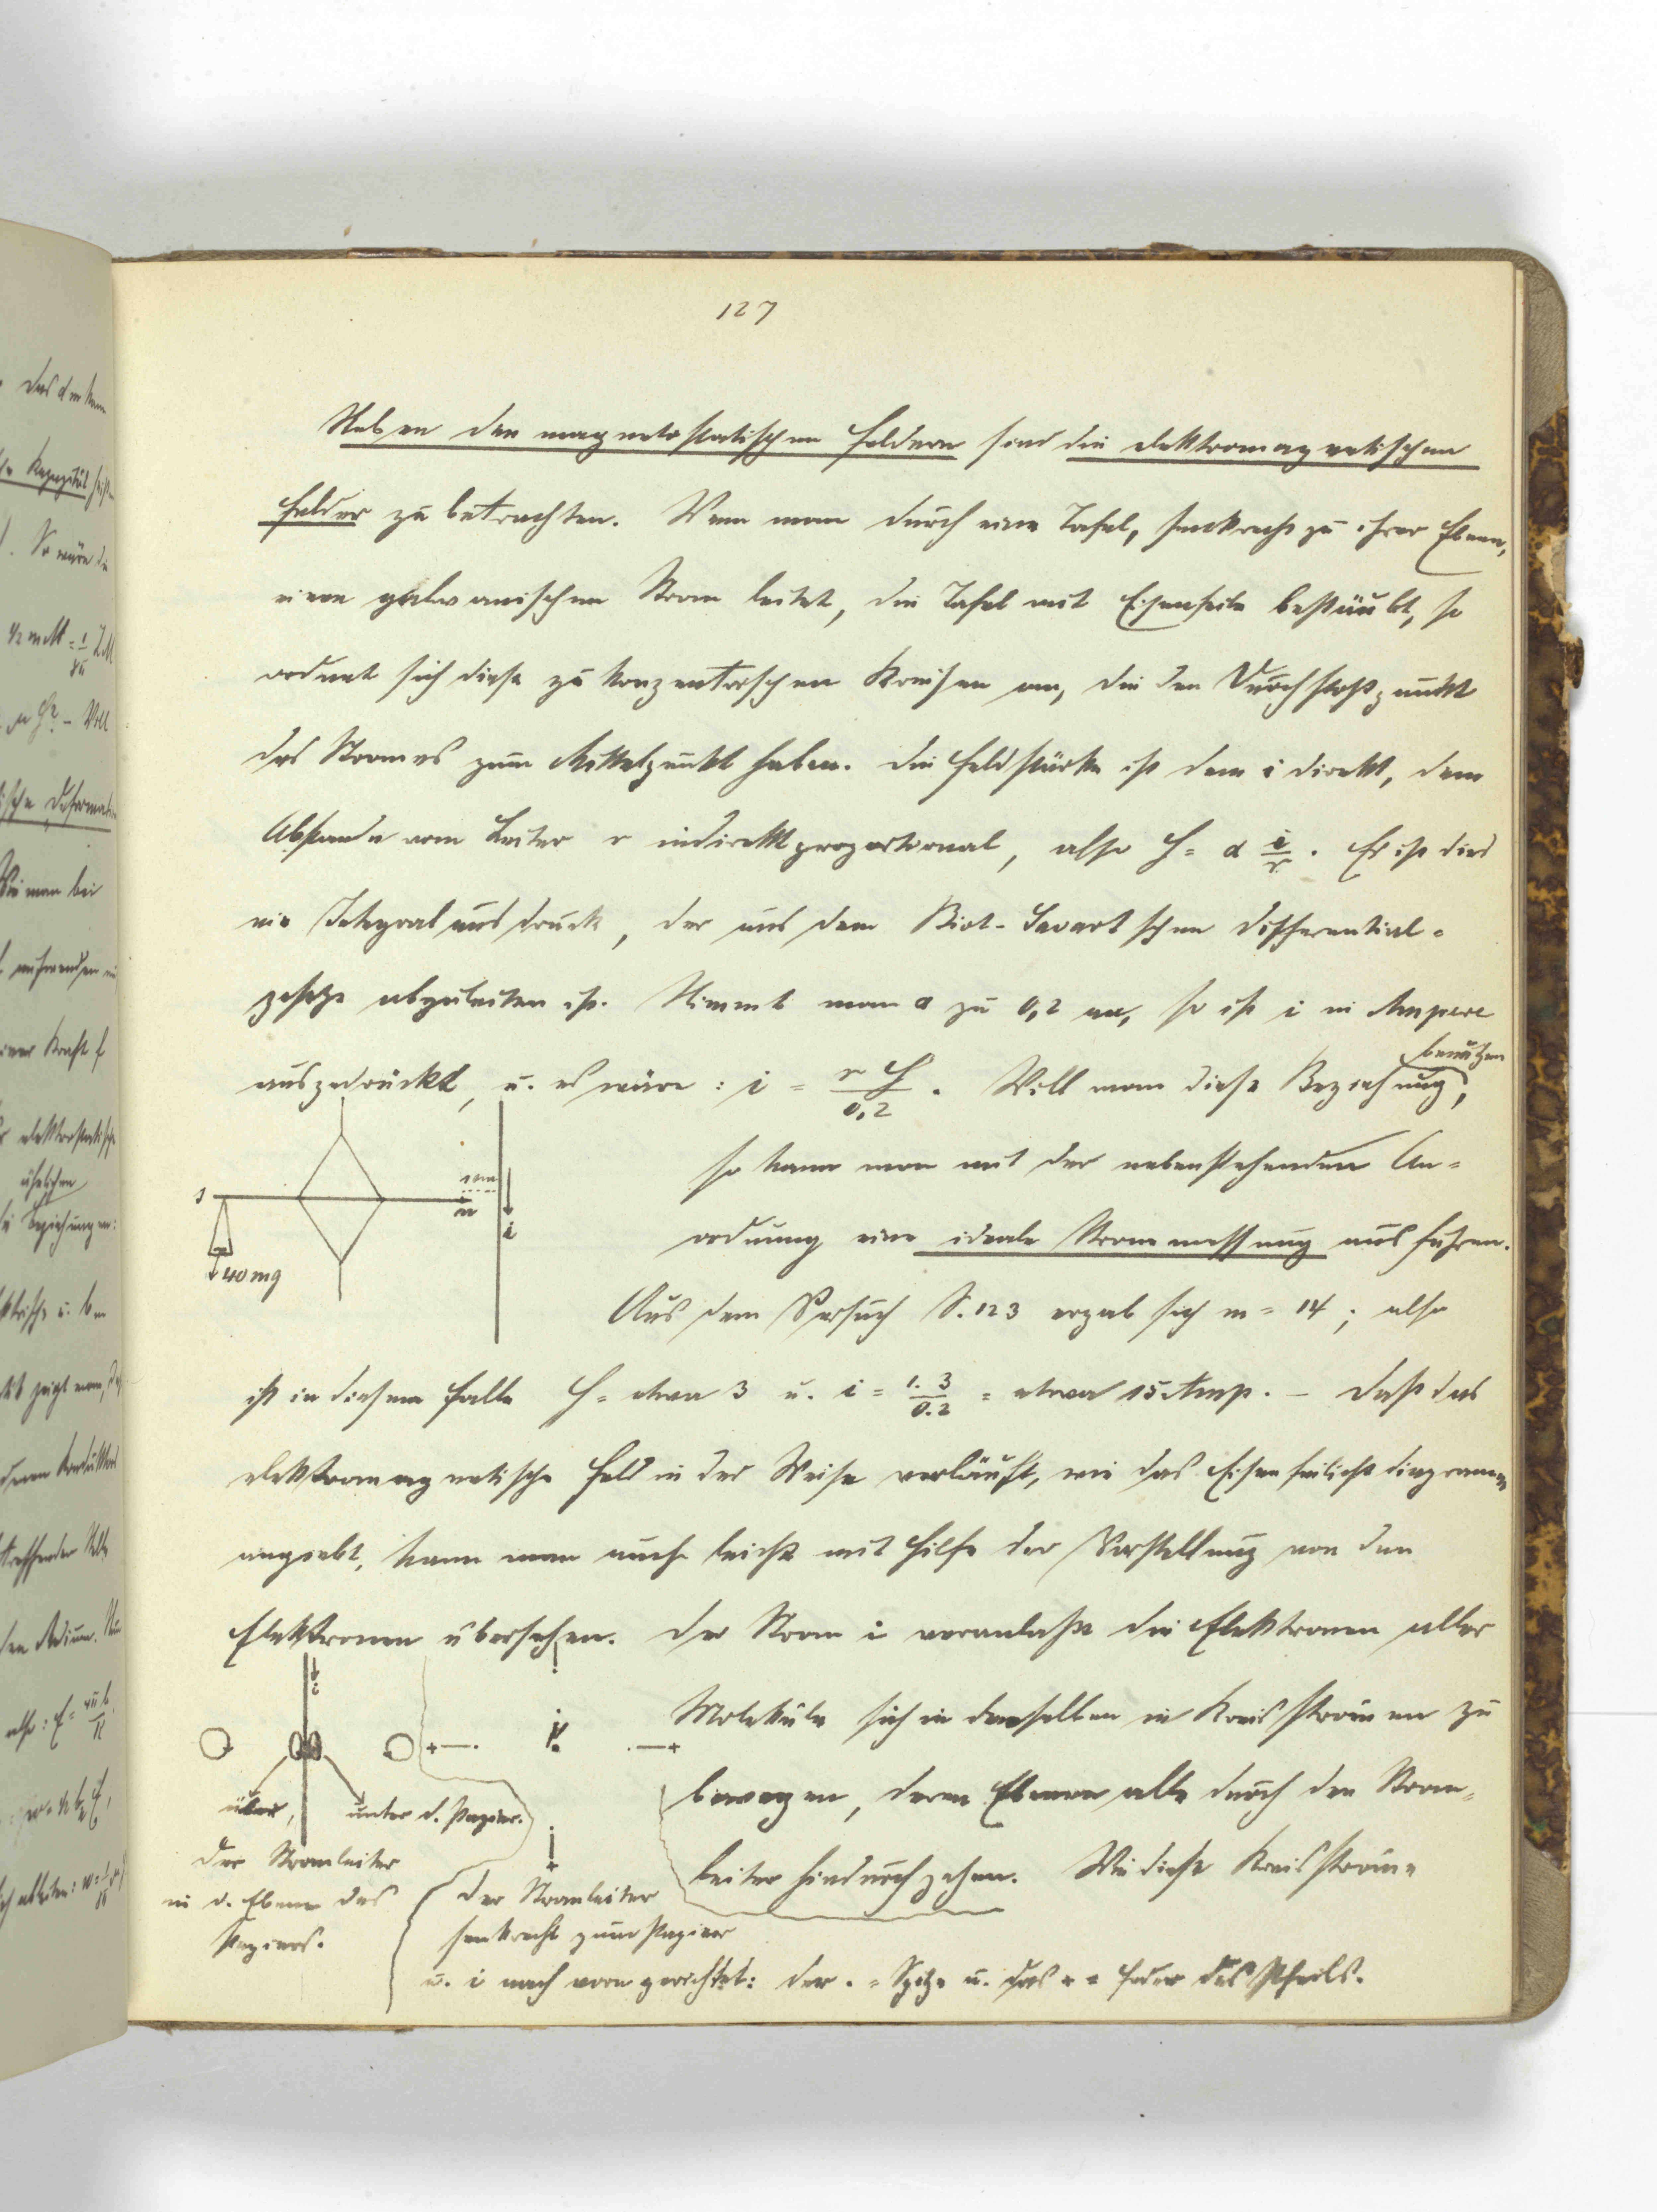 127
Neben den magnetostatischen Feldern sind die elektromagnetischen
Felder zu betrachten. Wenn man durch eine Tafel, senkrecht zu ihrer Ebene,
einen galvanischen Strom leitet, die Tafel mit Eisenfeile bestäubt, so
ordnet sich diese zu konzentrischen Kreisen an, die den Durchstoßpunkt
des Stromes zum Mittelpunkt haben. Die Feldstärke ist dem i direkt, dem
Abstande vom Leiter r indirekt proportional, also H = α i/r. Es ist dies
ein Integralausdruck, der aus dem Biot-Savartschen Differential=
gesetze abzuleiten ist. Nimmt man α zu 0,2 an, so ist i in Ampere
ausgedrückt, u. es wäre: i = r H/0,2. Will man diese Beziehung benützen,
so kann man mit der nebenstehenden An=
ordnung eine ideale Strommessung ausführen.
s
1 cm
n
i
40 mg
Aus dem Versuch S. 123 ergab sich m = 14; also
ist in diesem Falle H = etwa 3 u. i = 1. 3/0.2 = etwa 15 Amp. – Daß das
elektromagnetische Feld in der Weise verläuft, wie das Eisenfeilichtdiagramm
angiebt, kann man auch leicht mit Hilfe der Vorstellung von den
Elektronen übersehen. Der Strom i veranlaßt die Elektronen aller
Moleküle sich in denselben in Kreisströmen zu
bewegen, deren Ebenen alle durch den Strom=
leiter hindurchgehen. Wie diese Kreisströme
i
über, unter d. Papier.
Der Stromleiter
in d. Ebene des
Papieres.
Der Stromleiter
senkrecht zum Papier
u. i nach vorn gerichtet: der . = Spitze u. das + = Feder des Pfeils.